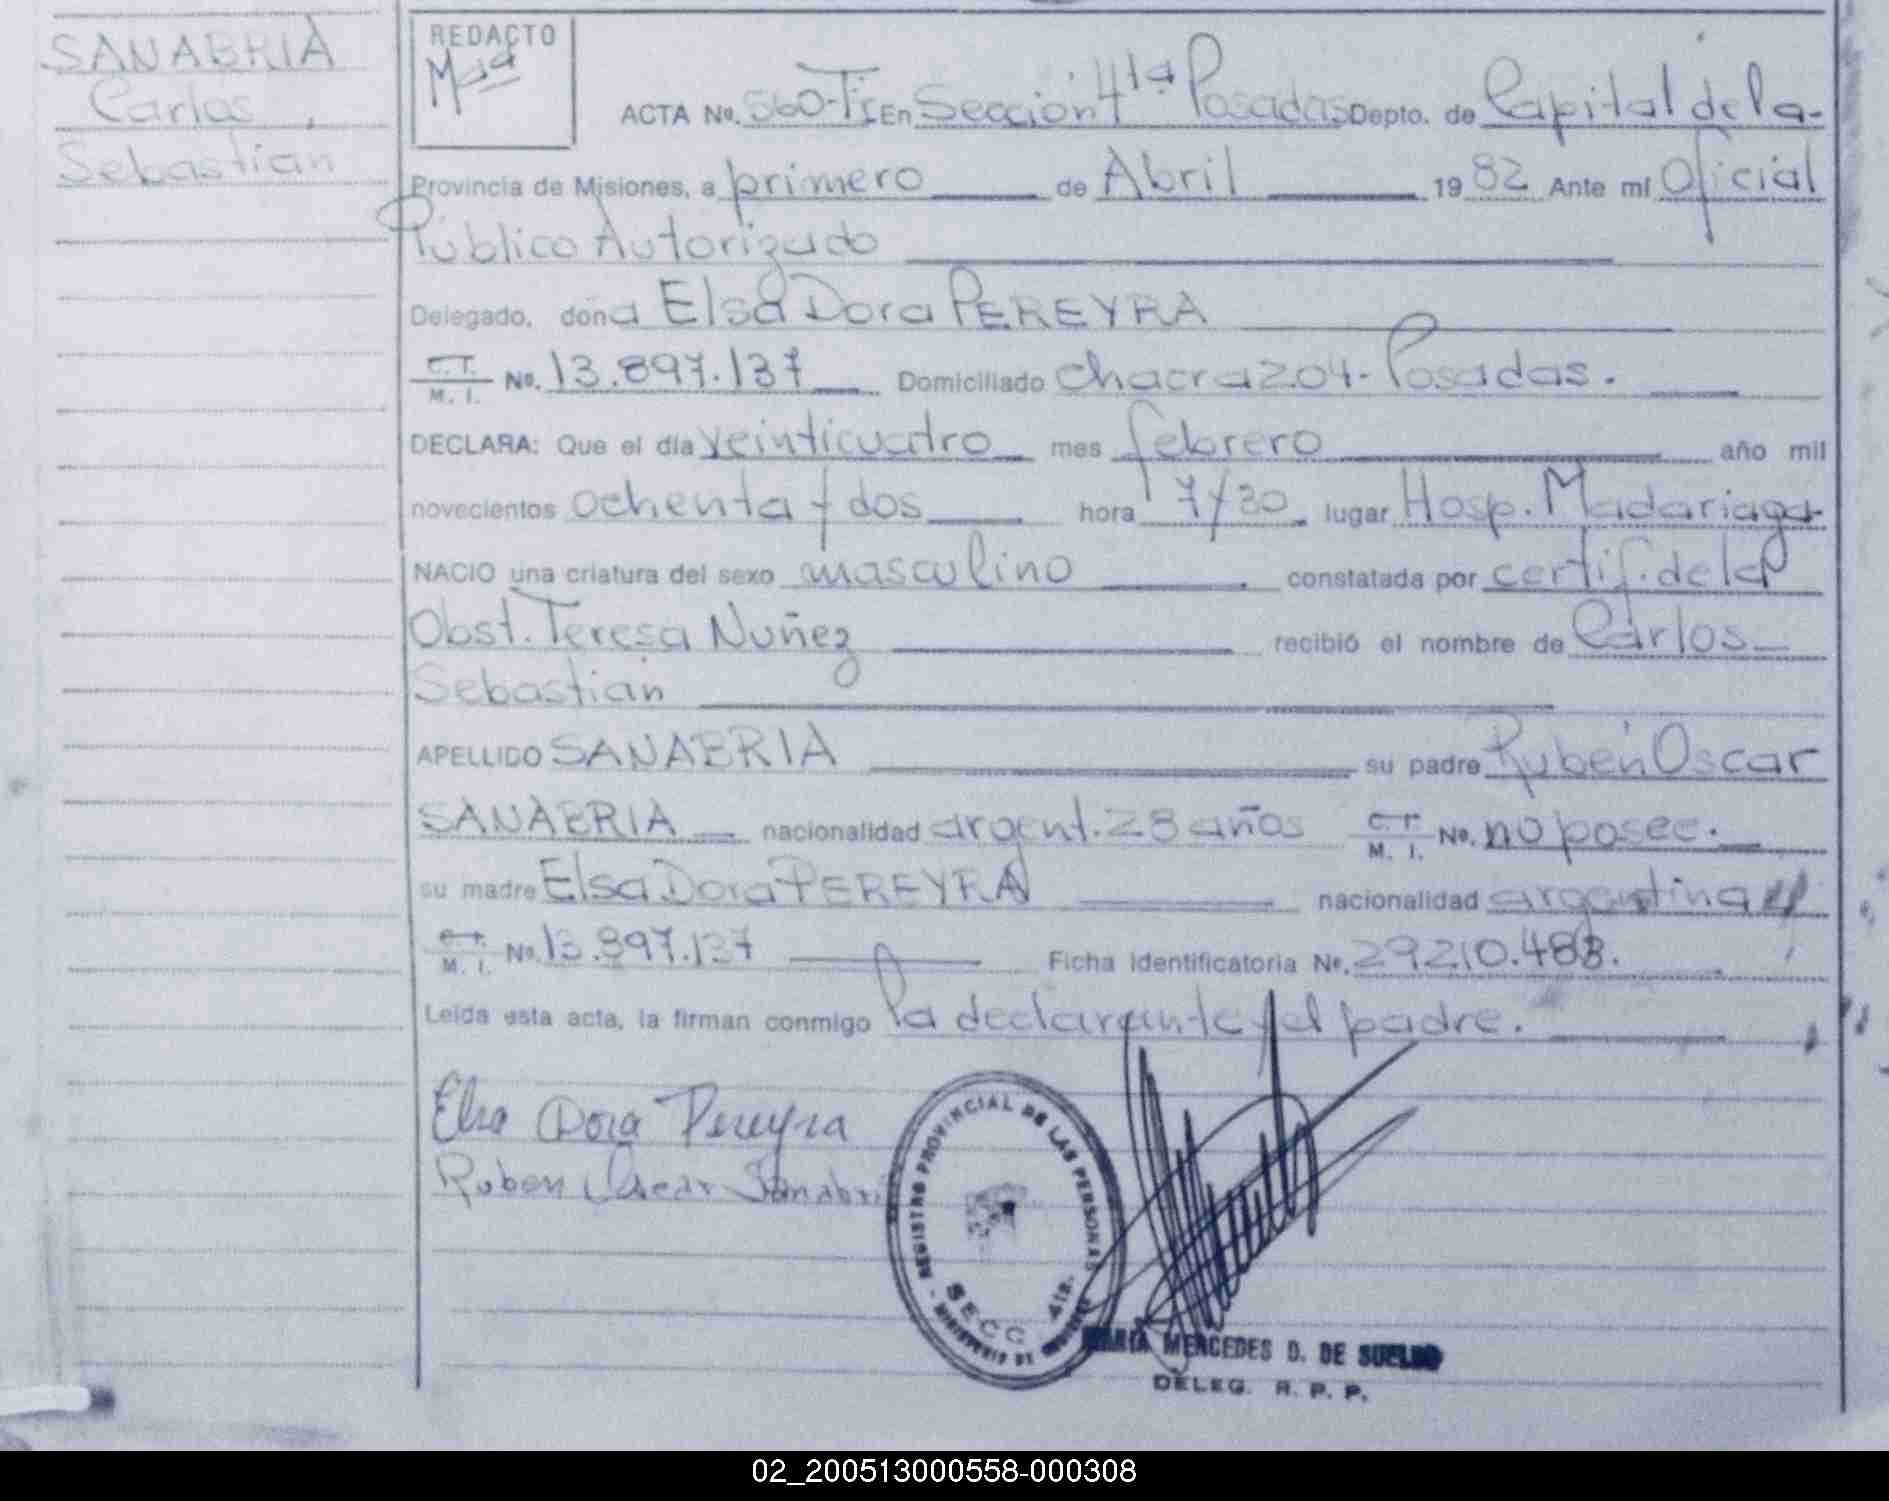 SANABRIA
Carlos
Sebastián
REDACTO
ACTA No. 560-Ti En Sección 4ta Posadas Depto. de Capital de la
Provincia de Misiones, a primero de Abril 1982 Ante mí Oficial
Público Autorizado
Delegado, doña Elsa Dora PEREYRA
C.I. M. I. No. 13.897.137 Domiciliado chacra 204- Posadas.
DECLARA: Que el día veinticuatro mes febrero año mil
novecientos ochenta y dos hora 17/30 lugar Hosp. Madariaga
NACIO una criatura del sexo masculino constatada por certif. de la
Obst. Teresa Nuñez recibió el nombre de Carlos
Sebastián
APELLIDO SANABRIA su padre Rubén Oscar
SANABRIA nacionalidad argent. 28 años C.I. M. I. No. no posee.
su madre Elsa Dora PEREYRA nacionalidad argentina
C.I. M. I. No. 13.897.137 Ficha identificatoria No. 29.210.488.
Leída esta acta, la firman conmigo la declarante y el padre.
Elsa Dora Pereyra
Ruben Oscar Sanabria
REGISTRO PROVINCIAL DE LAS PERSONAS
SECC 4ta.
MINISTERIO DE GOBIERNO
MARIA MERCEDES D. DE SUELDO
DELEG. R. P. P.
02_200513000558-000308